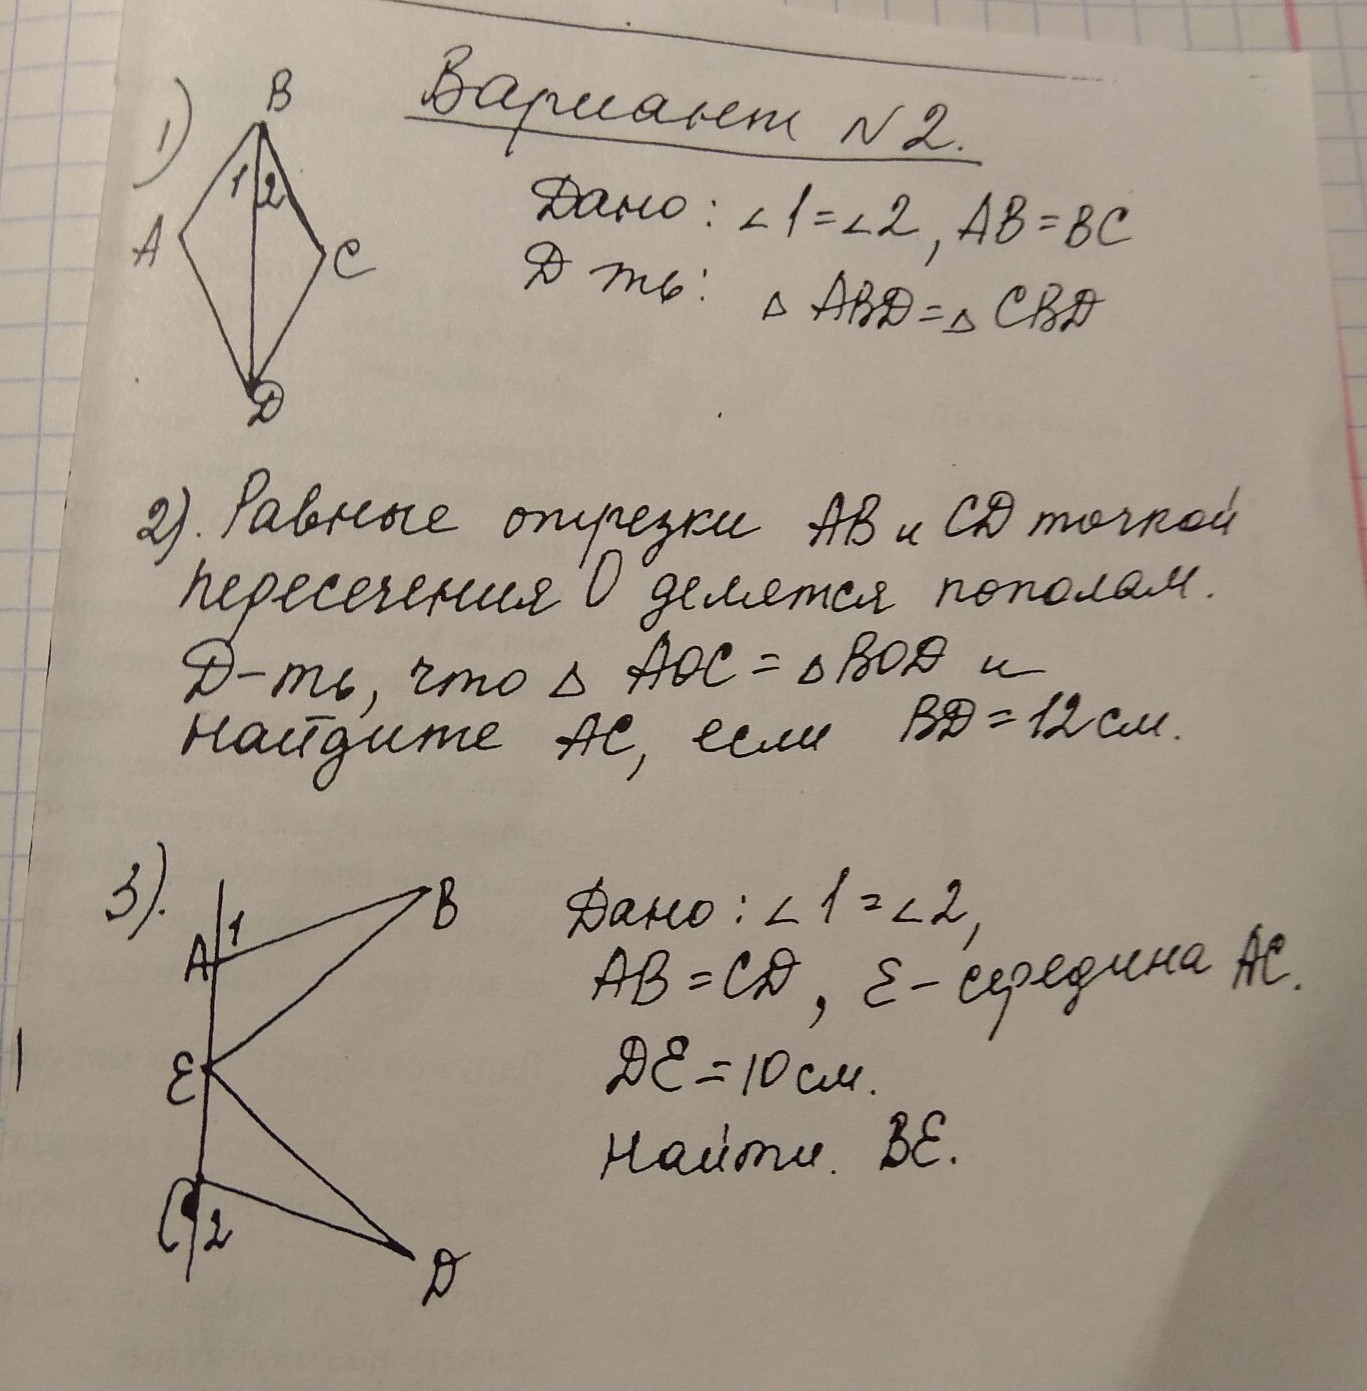 Вариант №2.
1)
B
1 2
A
C
D
Дано: ∠1=∠2, AB=BC
Д ть: △ ABD=△ CBD
2). Равные отрезки AB и CD точкой
пересечения O делятся пополам.
Д-ть, что △ AOC=△BOD и
найдите AC, если BD=12см.
3).
B
1
A
E
C 2
D
Дано: ∠1=∠2,
AB=CD, E-середина AC.
DE=10см.
Найти. BE.